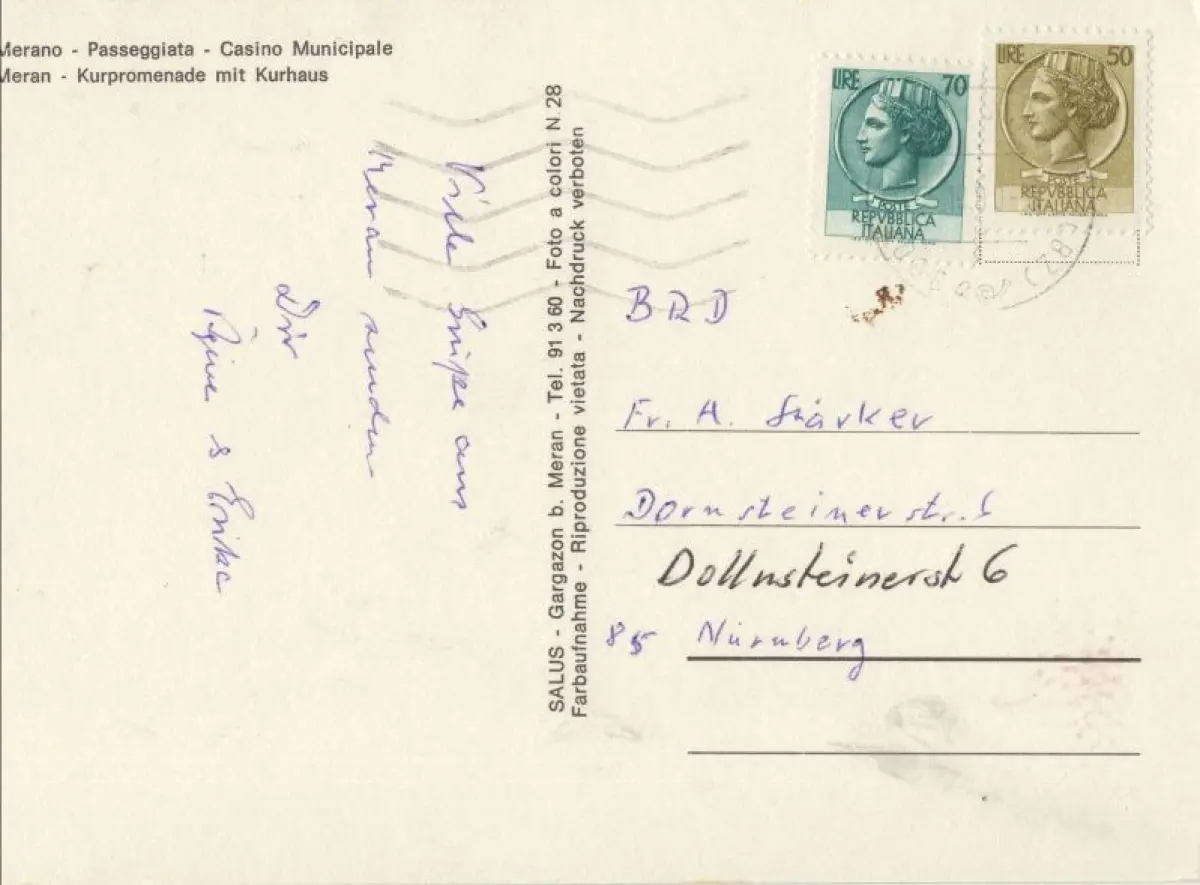 Merano - Passeggiata - Casino Municipale
Meran - Kurpromenade mit Kurhaus
Viele Grüße aus
Meran senden
Dir
& Erika
SALUS - Gargazon b. Meran - Tel. 91 3 60 - Foto a colori N. 28
Farbaufnahme - Riproduzione vietata - Nachdruck verboten
LIRE 70
POSTE
REPVBBLICA
ITALIANA
LIRE 50
POSTE
REPVBBLICA
ITALIANA
(BZ)
BRD
Fr. A. Stärker
Dornsteinerstr. 6
Dollnsteinerst 6
85 Nürnberg